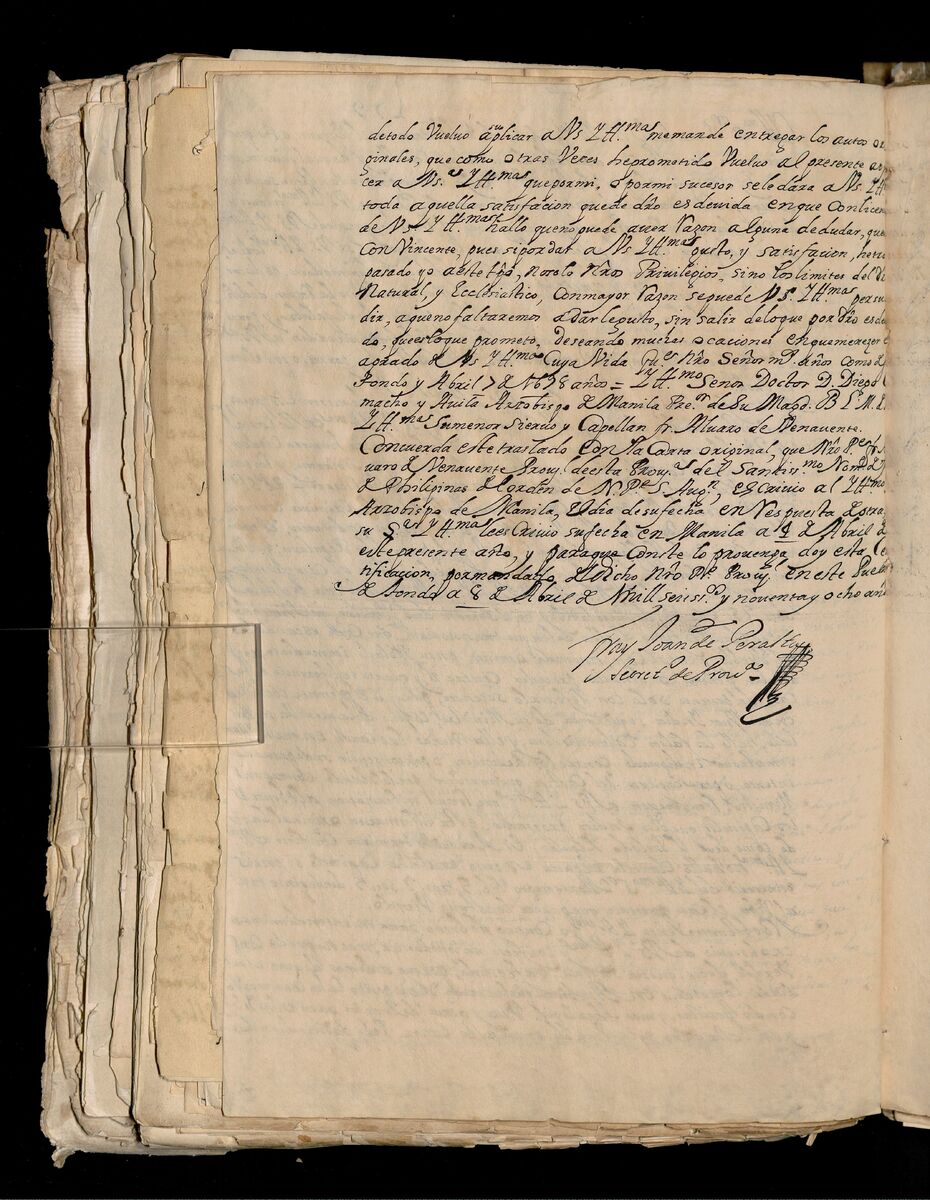 detodo Vuelvo a suplicar a Vs Yll.mas memande entregar los autos ori
ginales, que como otras Veces heprometido Vuelvo al presente a
cer a Vs.as Yll.mas quepormi, o pormi sucesor sele dara a Vs Yll
toda aquella satisfacion quede dro es devida enque Conlicen
de Vs Yll.mas hallo queno puede aver razon alguna dedudar, que
Con Vincente, pues sipordar a Vs Yll.mas gusto, y satisfacion, he
pasado yo no solo Nros Privilegios, sino los limites del
Natural, y Ecclesiastico, Conmayor razon sepuede Vs. Yll.mas persua
dir, aqueno faltaremos adarlegusto, sin salir deloque por dro es de
do, quees loque prometo, deseando muchas ocaciones enque merezer
agrado de Vs Yll.mas Cuya Vida Nro Señor m.s años como
Tondo y Abril 7 de 1698 años = Yll.mo Señor Doctor D. Diego
macho y Avila Arzobispo de Manila de Su Magd. B L. M.
Yll.mas Sumenor Siervo y Capellan fr. Alvaro de Venavente.
Concuerda este traslado Con la Carta original, que Nro P.e fr
varo de Venavente Prov.l decsta Prov.a del Santiss.mo Nom.e de
de Philipinas del orden de N. P.e S. Aug.n, escrivio al Yll.mo
Arzobispo de Manila, el dia desufecha en Respuesta de otra
su S.a Yll.mas leescrivio sufecha en Manila a 4 de Abril de
este presente año, y paraque Conste lo provenga doy esta Ce
tificacion, pormandado del dicho Nro P.e Prov.l en este Pueb
de Tondo a 8 de Abril de Mill seis.os y noventa y ocho añ
Fray Joan de Peralta
Secret.o de Prov.a